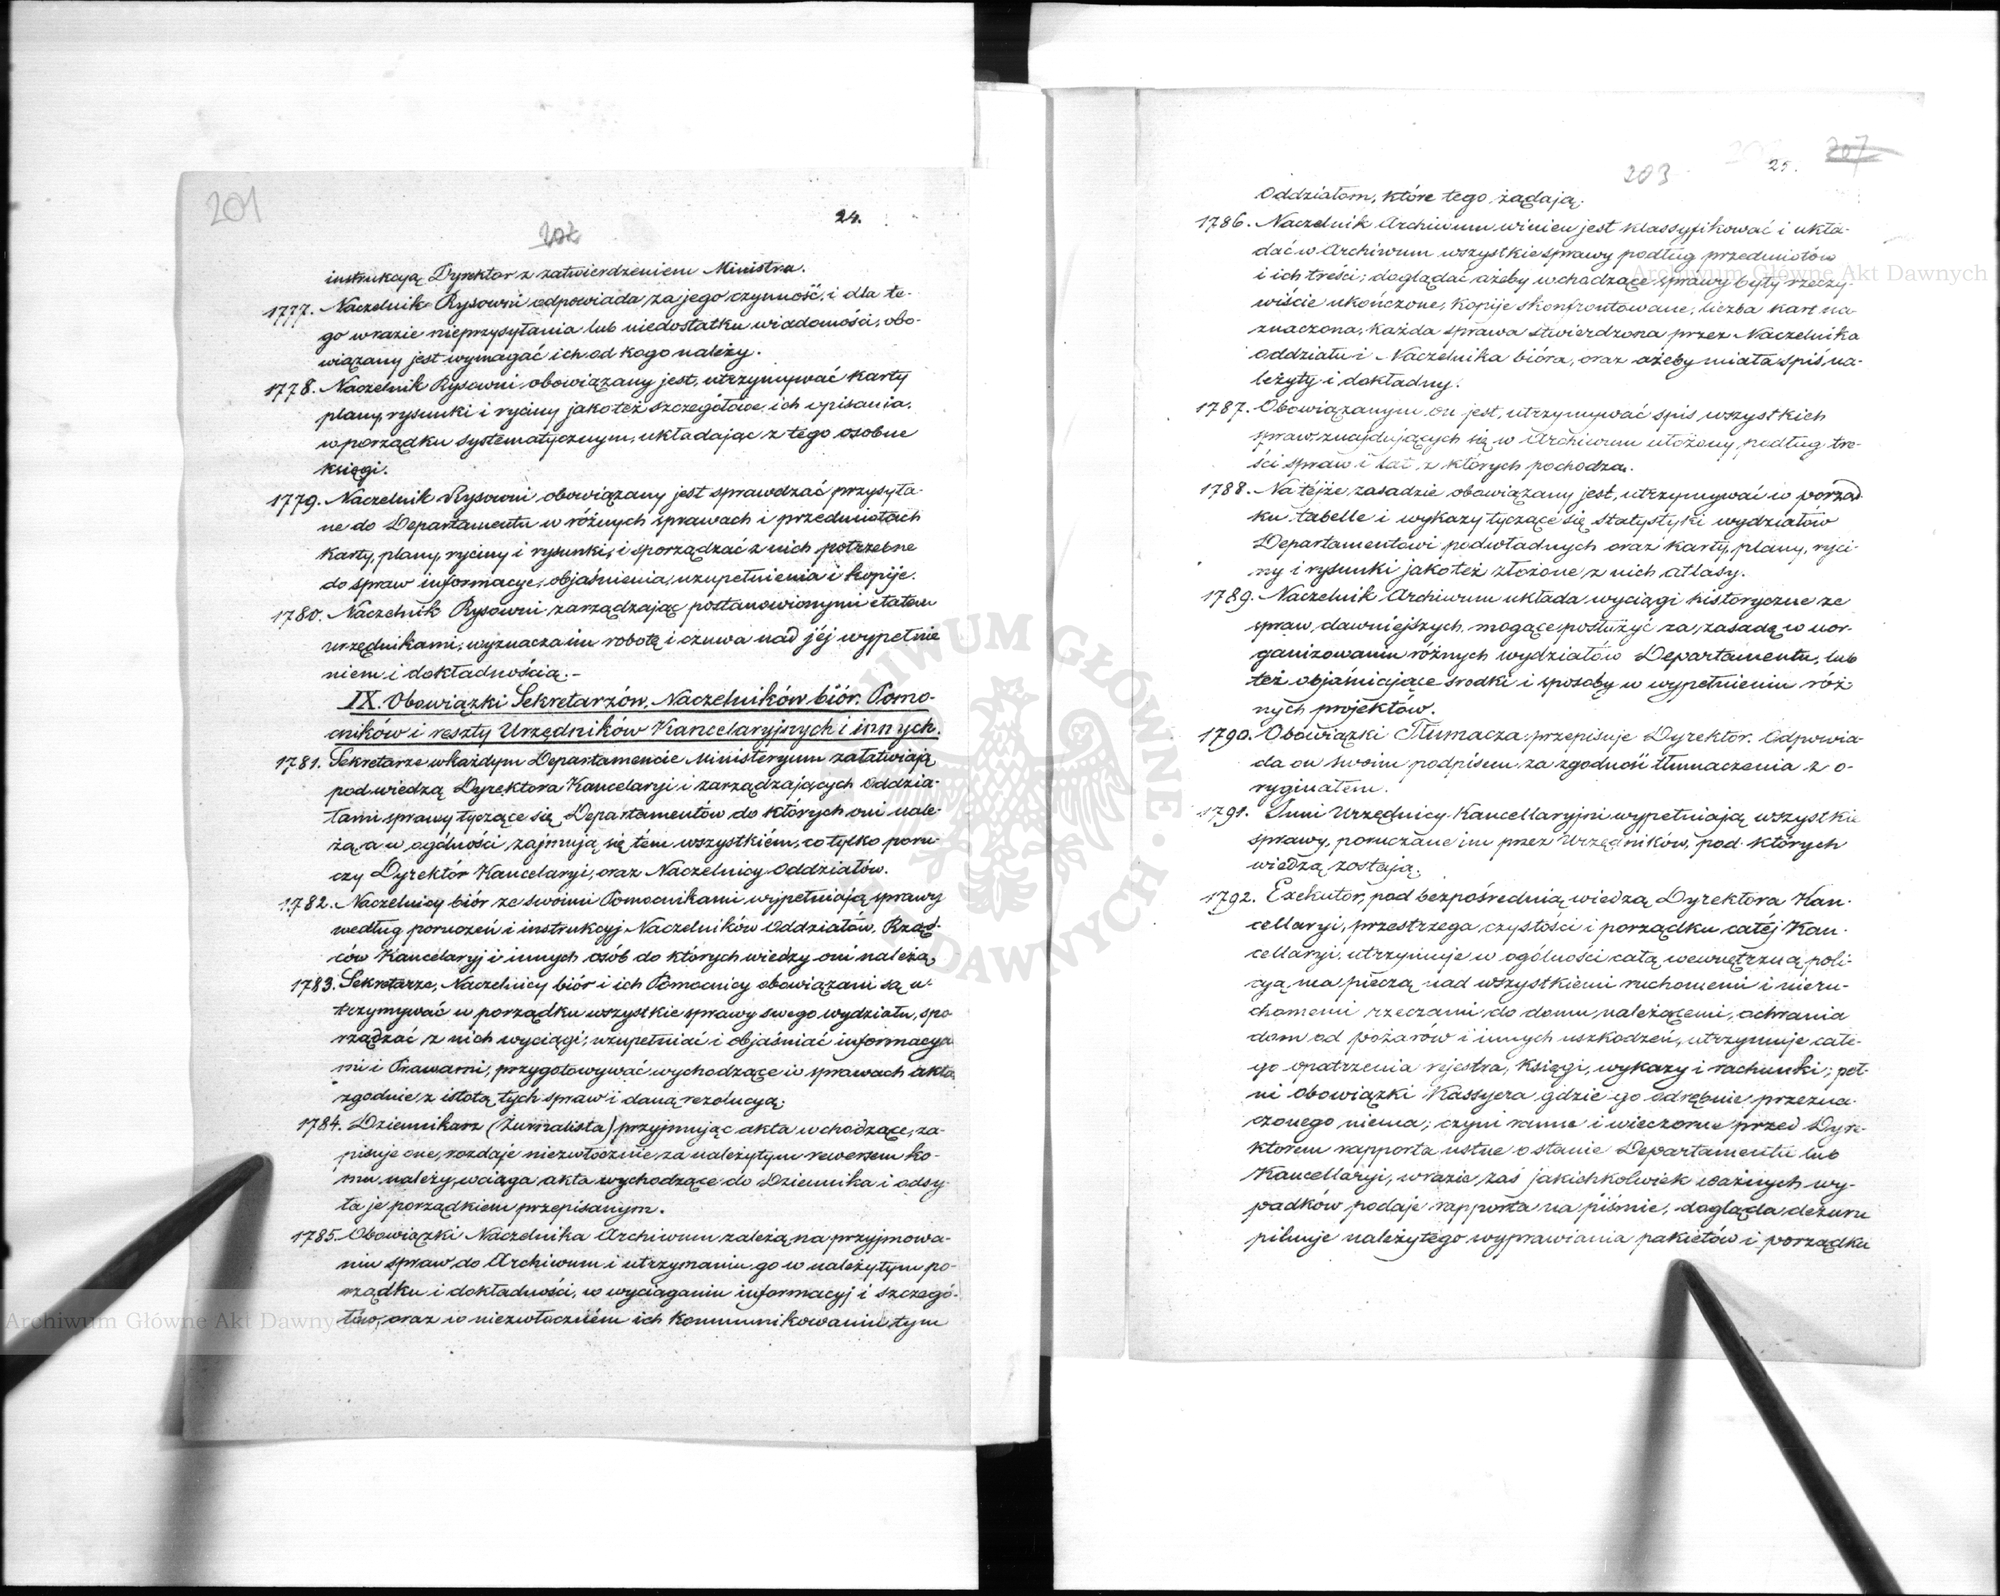 201
202
24.
instrukcyą Dyrektor z zatwierdzeniem Ministra.
1777. Naczelnik Rysowni odpowiada za jego czynność, i dla te-
go w razie nieprzysyłania lub niedostatku wiadomości, obo-
wiązany jest wymagać ich od kogo należy.
1778. Naczelnik Rysowni obowiązany jest, utrzymywać karty
plany, rysunki i ryciny jakoteż szczegółowe ich opisania,
w porządku systematycznym, układając z tego osobne
księgi.
1779. Naczelnik Rysowni obowiązany jest sprawdzać przysyła-
ne do Departamentu w różnych sprawach i przedmiotach
karty, plany, ryciny i rysunki, i sporządzać z nich potrzebne
do spraw informacye, objaśnienia, uzupełnienia i kopije.
1780. Naczelnik Rysowni zarządzając postanowionymi etatem
urzędnikami, wyznacza im robotę i czuwa nad jéj wypełnie
niem i dokładnością.-
IX. Obowiązki Sekretarzów, Naczelników biór, Pomo-
cników i reszty Urzędników Kancelaryjnych i innych.
1781. Sekretarze w każdym Departamencie Ministeryum załatwiają
pod wiedzą Dyrektora Kancelaryi i zarządzających Oddzia-
łami sprawy tyczące się Departamentów do których oni nale-
żą, a w ogólności zajmują się tém wszystkiém, co tylko poru-
czy Dyrektór Kancelaryi, oraz Naczelnicy Oddziałów.
1782. Naczelnicy biór ze swoimi Pomocnikami wypełniają sprawy
według poruczeń i instrukcyj Naczelników Oddziałów, Rząd-
ców Kancelaryj i innych osób do których wiedzy oni należą.
1783. Sekretarze, Naczelnicy biór i ich Pomocnicy obowiązani są u-
trzymywać w porządku wszystkie sprawy swego wydziału, spo
rządzać z nich wyciągi, uzupełniać i objaśniać informacya
mi i Prawami, przygotowywać wychodzące w sprawach akta
zgodnie z istotą tych spraw i daną rezolucyą.
1784. Dziennikarz (Żurnalista) przyjmując akta wchodzące, za-
pisuje one, rozdaje niezwłocznie za należytym rewersem ko-
mu należy, wciąga akta wychodzące do Dziennika i odsy-
ła je porządkiem przepisanym.
1785. Obowiązki Naczelnika Archiwum zależą na przyjmowa-
niu spraw do Archiwum i utrzymaniu go w należytym po-
rządku i dokładności, w wyciąganiu informacyj i szczegó-
łów, oraz w niezwłoczném ich kommunikowaniu tym
203
25.
207
Oddziałom, które tego żądają.
1786. Naczelnik Archiwum winien jest klassyfikować i ukła-
dać w Archiwum wszystkie sprawy podług przedmiotów
i ich treści; doglądać ażeby wchodzące sprawy były rzeczy-
wiście ukończone, kopije skonfrontowane, liczba kart na
znaczona, każda sprawa stwierdzona przez Naczelnika
oddziału i Naczelnika bióra, oraz ażeby miała spis na-
leżyty i dokładny.
1787. Obowiązanym on jest, utrzymywać spis wszystkich
spraw znajdujących się w Archiwum ułożony podług tre-
ści spraw i lat z których pochodzą.
1788. Na tejże zasadzie obowiązany jest, utrzymywać w porząd
ku tabelle i wykazy tyczące się statystyki wydziałów
Departamentowi podwładnych oraz karty, plany, ryci-
ny i rysunki jakoteż złożone z nich atlasy.
1789. Naczelnik Archiwum układa wyciągi historyczne ze
spraw dawniejszych, mogące posłużyć za zasadę w uor-
ganizowaniu różnych wydziałów Departamentu, lub
też objaśniające srodki i sposoby w wypełnieniu róż-
nych projektów.
1790. Obowiązki Tłumacza przepisuje Dyrektór. Odpowia-
da on swoim podpisem za zgodność tłumaczenia z o-
ryginałem.
1791. Inni Urzędnicy Kancellaryjni wypełniają wszystkie
sprawy, poruczane im przez Urzędników, pod których
wiedzą zostają.
1792. Exekutor, pod bezpośrednią wiedzą Dyrektora Kan-
cellaryi, przestrzega czystości i porządku całéj Kan-
cellaryi, utrzymuje w ogólności całą wewnętrzną poli-
cyą, ma pieczą nad wszystkiemi ruchomemi i nieru-
chomemi rzeczami do domu należącemi, ochrania
dom od pożarów i innych uszkodzeń, utrzymuje całe-
go opatrzenia rejestra, księgi, wykazy i rachunki; peł-
ni Obowiązki Kassyera gdzie go odrębnie przezna-
czonego niema; czyni ranne i wieczorne przed Dyre-
ktorem rapporta ustne o stanie Departamentu lub
Kancellaryi, w razie zaś jakichkolwiek ważnych wy-
padków podaje rapporta na piśmie, dogląda dezuru
pilnuje należytego wyprawiania pakietów i porządku
Archiwum Główne Akt Dawnych
Archiwum Główne Akt Dawnych
ARCHIWUM GŁÓWNE AKT DAWNYCH